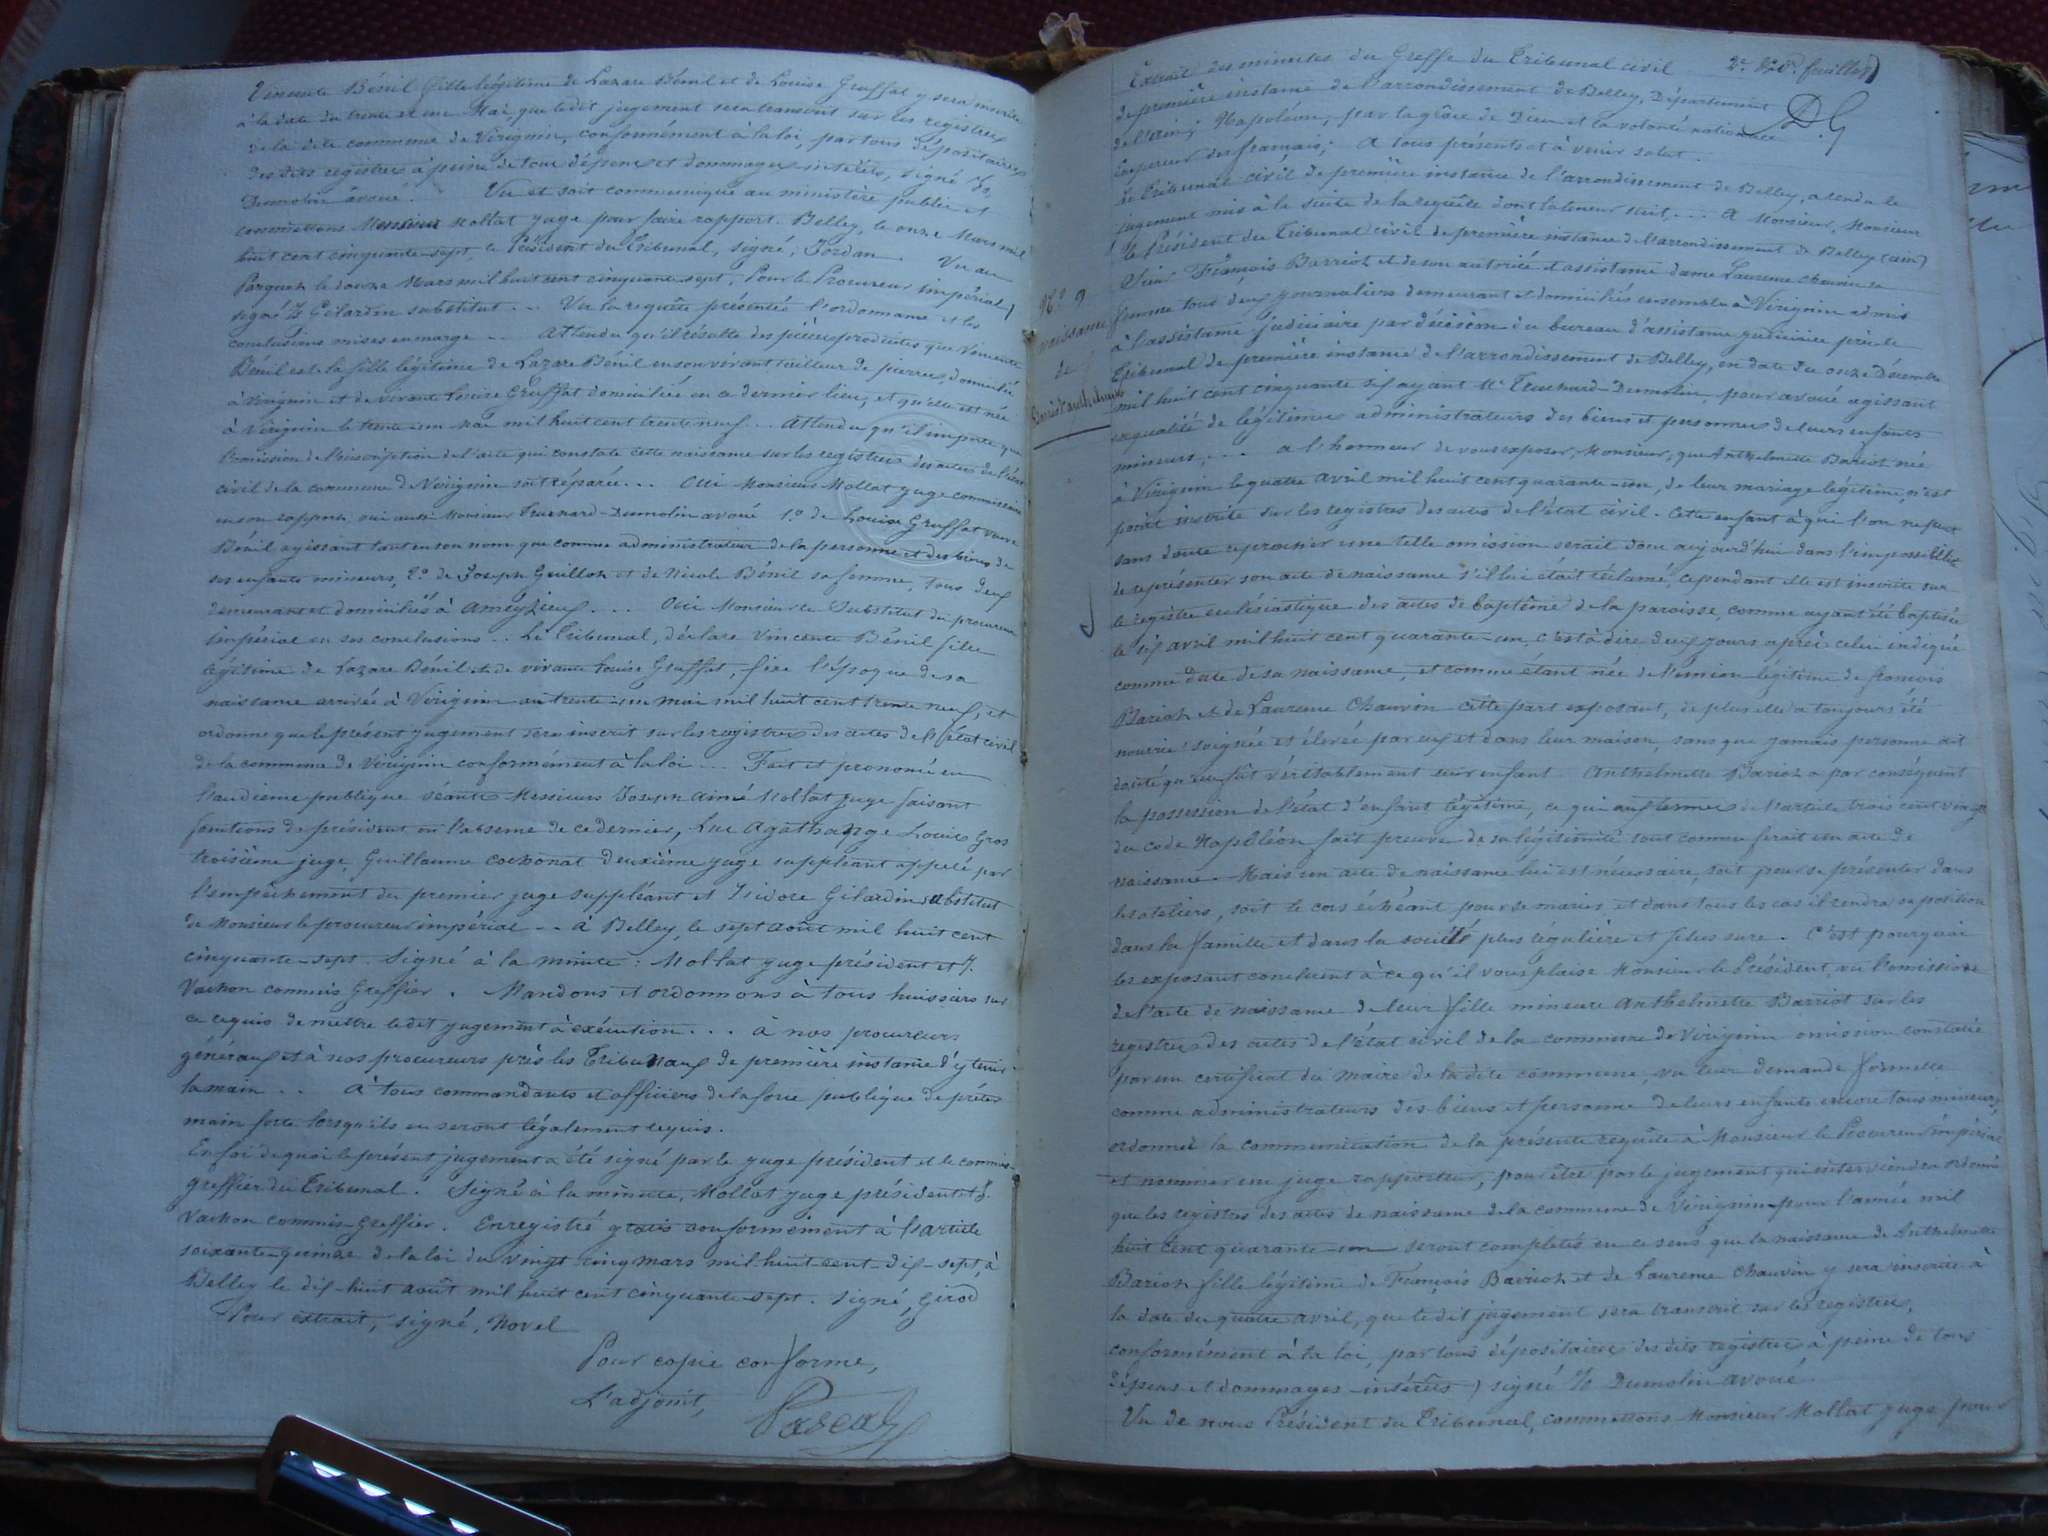 Vincente Bénil fille légitime de Lazare Bénil et de Louise Gruffat y sera inscrite
à la date du trente et un Mai, que le dit jugement sera transcrit sur les registres
de la dite commune de Virignin, conformément à la loi, par tous dépositaires
des dits registres à peine de tous dépens et dommages-intérêts, signé
Dumolin avoué. Vu et soit communiqué au ministère public et
commettons Monsieur Mollat juge pour faire rapport. Belley, le onze Mars mil
huit cent cinquante-sept, le Président du Tribunal, signé, Jordan. Vu au
Parquet le douze Mars mil huit cent cinquante-sept, Pour le Procureur impérial,
signé Gilardin substitut. .. Vu la requête présentée l'ordonnance et les
conclusions mises en marge .. Attendu qu'il résulte des pièces produites que Vincente
Bénil est la fille légitime de Lazare Bénil en son vivant tailleur de pierres domicilié
à Virignin et de vivante Louise Gruffat domiciliée en ce dernier lieu, et qu'elle est née
à Virignin le trente un mai mil huit cent trente neuf .. Attendu qu'il importe que
l'omission de l'inscription de l'acte qui constate cette naissance sur les registres des actes de l'état
civil de la commune de Virignin soit réparée ... Oui Monsieur Mollat juge commissaire
en son rapport, oui aussi Monsieur Truchard-Dumolin avoué 1º de Louise Gruffat veuve
Bénil agissant tant en son nom que comme administrateur de la personne et des biens de
ses enfants mineurs, 2º de Joseph Guillot et de Nicole Bénil sa femme, tous deux
demeurant et domiciliés à Ameyzieux. ... Oui Monsieur le Substitut du procureur
impérial en ses conclusions .. Le Tribunal, déclare Vincente Bénil fille
légitime de Lazare Bénil et de vivante Louise Gruffat, fixe l'époque de sa
naissance arrivée à Virignin au trente-un mai mil huit cent trente neuf, et
ordonne que le présent jugement sera inscrit sur les registres des actes de l'état civil
de la commune de Virignin conformément à la loi ... Fait et prononcé en
l'audience publique séante Messieurs Joseph Aimé Mollat juge faisant
fonctions de président en l'absence de ce dernier, Luc Agathange Louis Gros
troisième juge, Guillaume Cochonat deuxième juge suppléant appelé par
l'empêchement du premier juge suppléant et Isidore Gilardin substitut
de Monsieur le procureur impérial -- à Belley, le sept août mil huit cent
cinquante-sept. Signé à la minute: Mollat juge président et J.
Vachon commis Greffier. Mandons et ordonnons à tous huissiers sur
ce requis de mettre le dit jugement à exécution ... à nos procureurs
généraux et à nos procureurs près les Tribunaux de première instance d'y tenir
la main .. À tous commandants et officiers de la force publique de prêter
main forte lorsqu'ils en seront légalement requis.
En foi de quoi le présent jugement a été signé par le juge président et le commis-
greffier du Tribunal. Signé à la minute, Mollat juge président et J.
Vachon commis-Greffier. Enregistré gratis conformément à l'article
soixante-quinze de la loi du vingt cinq mars mil-huit-cent-dix-sept, à
Belley le dix-huit août mil huit cent cinquante-sept. Signé, Girod
Pour extrait, signé, Novel
Pour copie conforme,
L'adjoint,
Pascal
2e. feuillet
DG
Extrait des minutes du Greffe du Tribunal civil
de première instance de l'arrondissement de Belley, Département
de l'Ain; Napoléon, par la grâce de Dieu et la volonté nationale
Empereur des français; A tous présents et à venir salut.
Le Tribunal civil de première instance de l'arrondissement de Belley, a rendu le
jugement mis à la suite de la requête dont la teneur suit .... A Monsieur, Monsieur
le Président du Tribunal civil de première instance de l'arrondissement de Belley (ain)
Sieur François Barriot et de son autorité et assistance dame Laurence Chauvin sa
femme tous deux journaliers demeurant et domiciliés ensemble à Virignin admis
à l'assistance judiciaire par décision du bureau d'assistance judiciaire près le
Tribunal de première instance de l'arrondissement de Belley, en date du onze Décembre
mil huit cent cinquante six ayant Me Truchard-Dumolin pour avoué agissant
en qualité de légitimes administrateurs des biens et personnes de leurs enfants
mineurs, ... a l'honneur de vous exposer, Monsieur, que Anthelmette Bariot née
à Virignin le quatre avril mil huit cent quarante-un, de leur mariage légitime, n'est
point inscrite sur les registres des actes de l'état civil. Cette enfant à qui l'on ne peut
sans doute reprocher une telle omission serait donc aujourd'hui dans l'impossibilité
de représenter son acte de naissance s'il lui était réclamé, cependant elle est inscrite sur
le registre ecclésiastique des actes de baptême de la paroisse, comme ayant été baptisée
le six avril mil huit cent quarante-un, c'est à dire deux jours après celui indiqué
comme date de sa naissance, et comme étant née de l'union légitime de françois
Bariot et de Laurence Chauvin cette part exposant, de plus elle a toujours été
nourrie soignée et élevée par eux et dans leur maison, sans que jamais personne ait
douté qu'elle fût véritablement leur enfant. Anthelmette Bariot a par conséquent
la possession de l'état d'enfant légitime, ce qui aux termes de l'article trois cent vingt
du code Napoléon fait preuve de sa légitimité tout comme ferait un acte de
naissance. Mais un acte de naissance lui est nécessaire, soit pour se présenter dans
les ateliers, soit le cas échéant pour se marier, et dans tous les cas il rendra sa position
dans la famille et dans la société plus régulière et plus sure. C'est pourquoi
les exposant concluent à ce qu'il vous plaise Monsieur le Président, vu l'omission
de l'acte de naissance de leur fille mineure Anthelmette Barriot sur les
registres des actes de l'état civil de la commune de Virignin omission constatée
par un certificat du maire de la dite commune, vu leur demande formelle
comme administrateurs des biens et personne de leurs enfants encore tous mineurs,
ordonner la communication de la présente requête à Monsieur le Procureur impérial
et nommer un juge rapporteur, pour être par le jugement qui interviendra ordonné
que les registres des actes de naissance de la commune de Virignin pour l'année mil
huit cent quarante-un seront complétés en ce sens que la naissance de Anthelmette
Bariot fille légitime de François Barriot et de Laurence Chauvin y sera inscrite à
la date du quatre avril, que le dit jugement sera transcrit sur les registres,
conformément à la loi, par tous dépositaires des dits registres à peine de tous
dépens et dommages-intérêts) signé Dumolin avoué.
Vu de nous Président du Tribunal, commettons Monsieur Mollat juge pour
naissance
de
Bariot anthelmette